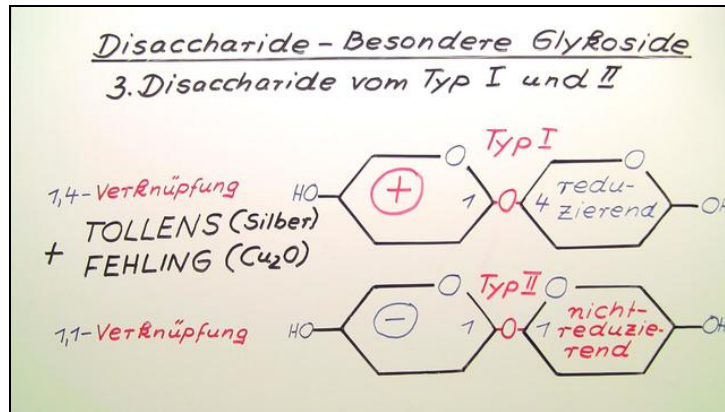 Disaccharide - Besondere Glykoside
3. Disaccharide vom Typ I und II
Typ I
O
1,4-Verknüpfung
HO
+
1
O
4
O
redu-
zierend
OH
+ TOLLENS (Silber)
FEHLING (Cu₂O)
Typ II
O
O
1,1-Verknüpfung
HO
-
1
O
1
nicht-
reduzie-
rend
OH